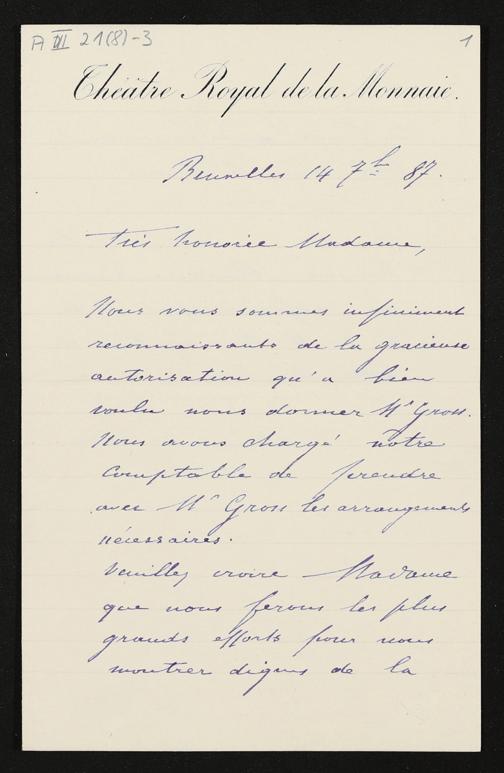 A III 21(8)-3
1
Théâtre Royal de la Monnaie.
Bruxelles 14 7bre 87.
Très honorée Madame,
Nous vous sommes infiniment
reconnaissants de la gracieuse
autorisation qu'a bien
voulu nous donner Mr Gross.
Nous avons chargé notre
comptable de prendre
avec Mr Gross les arrangements
nécessaires.
Veuillez croire Madame
que nous ferons les plus
grands efforts pour nous
montrer dignes de la